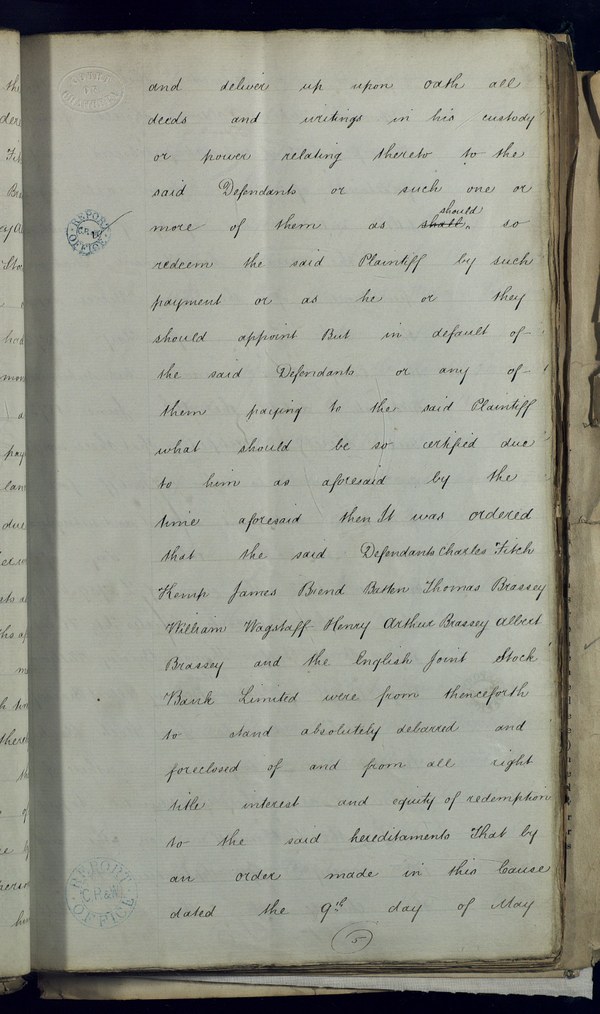 and deliver up upon oath all
deeds and writings in his custody
or power relating thereto to the
said Defendants or such one or
should
more of them as shall so
redeem the said Plaintiff by such
payment or as he or they
should appoint But in default of
the said Defendants or any of
them paying to the said Plaintiff
what should be so certified due
to him as aforesaid by the
time aforesaid then It was ordered
that the said Defendants Charles Fitch
Kemp James Brend Batten Thomas Brassey
William Wagstaff Henry Arthur Brassey Albert
Brassey and the English Joint Stock
Bank Limited were from thenceforth
to stand absolutely debarred and
foreclosed of and from all right
title interest and equity of redemption
to the said hereditaments That by
an order made in this Cause
dated the 9th day of May
5
REPORT
OFFICE
REPORT
OFFICE